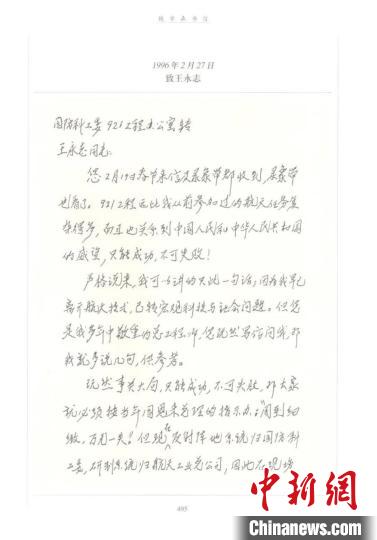 钱学森书信
1996年2月27日
致王永志
国防科工委921工程办公室转
王永志同志:
您2月19日春节来信及录象带都收到,录象带
也看了。921工程远比我从前参加过的航天任务复
杂得多,而且也关系到中国人民和中华人民共和国
的威望,只能成功,不可失败!
严格说来,我可以讲的只此一句话;因为我早已
离开航天技术,已转宏观科技与社会问题。但您
是我多年中敬重的总工程师,您既然写信问我,那
我就多说几句,供参考。
既然事关大局,只能成功,不可失败,那大家
就必须按当年周恩来总理的指示办:“周到细
致,万无一失!但现在发射阵地系统归国防科
工委,研制系统归航天工业总公司,因此在现场
495
中新网
www.chinanews.com